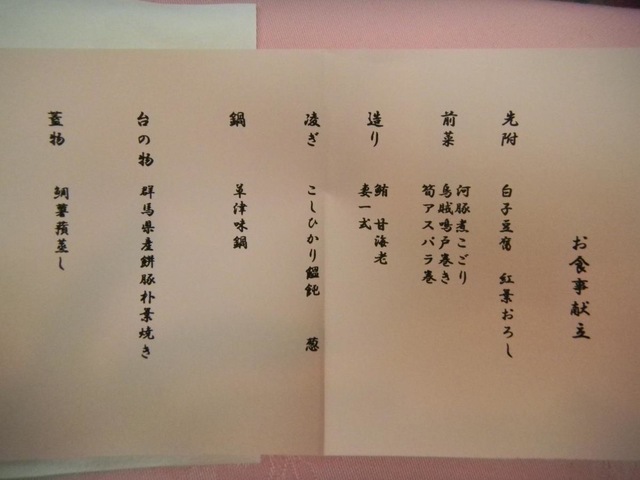 お食事献立
先附　白子豆腐　紅葉おろし
前菜　河豚煮こごり
烏賊鳴戸巻き
筍アスパラ巻
造り　鮪　甘海老
妻一式
凌ぎ　こしひかり饂飩　葱
鍋　草津味鍋
台の物　群馬県産餅豚朴葉焼き
蓋物　鯛薯蕷蒸し